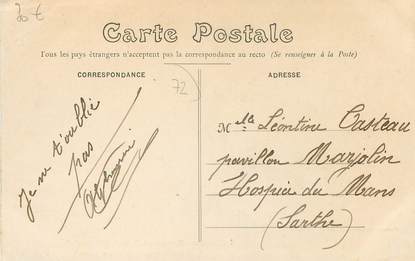 30 €
Carte Postale
Tous les pays étrangers n'acceptent pas la correspondance au recto (Se renseigner à la Poste)
CORRESPONDANCE
72
Je ne t'oublie
pas
ADRESSE
Melle Léontine Casteau
pavillon Marjolin
Hospice du Mans
(Sarthe)